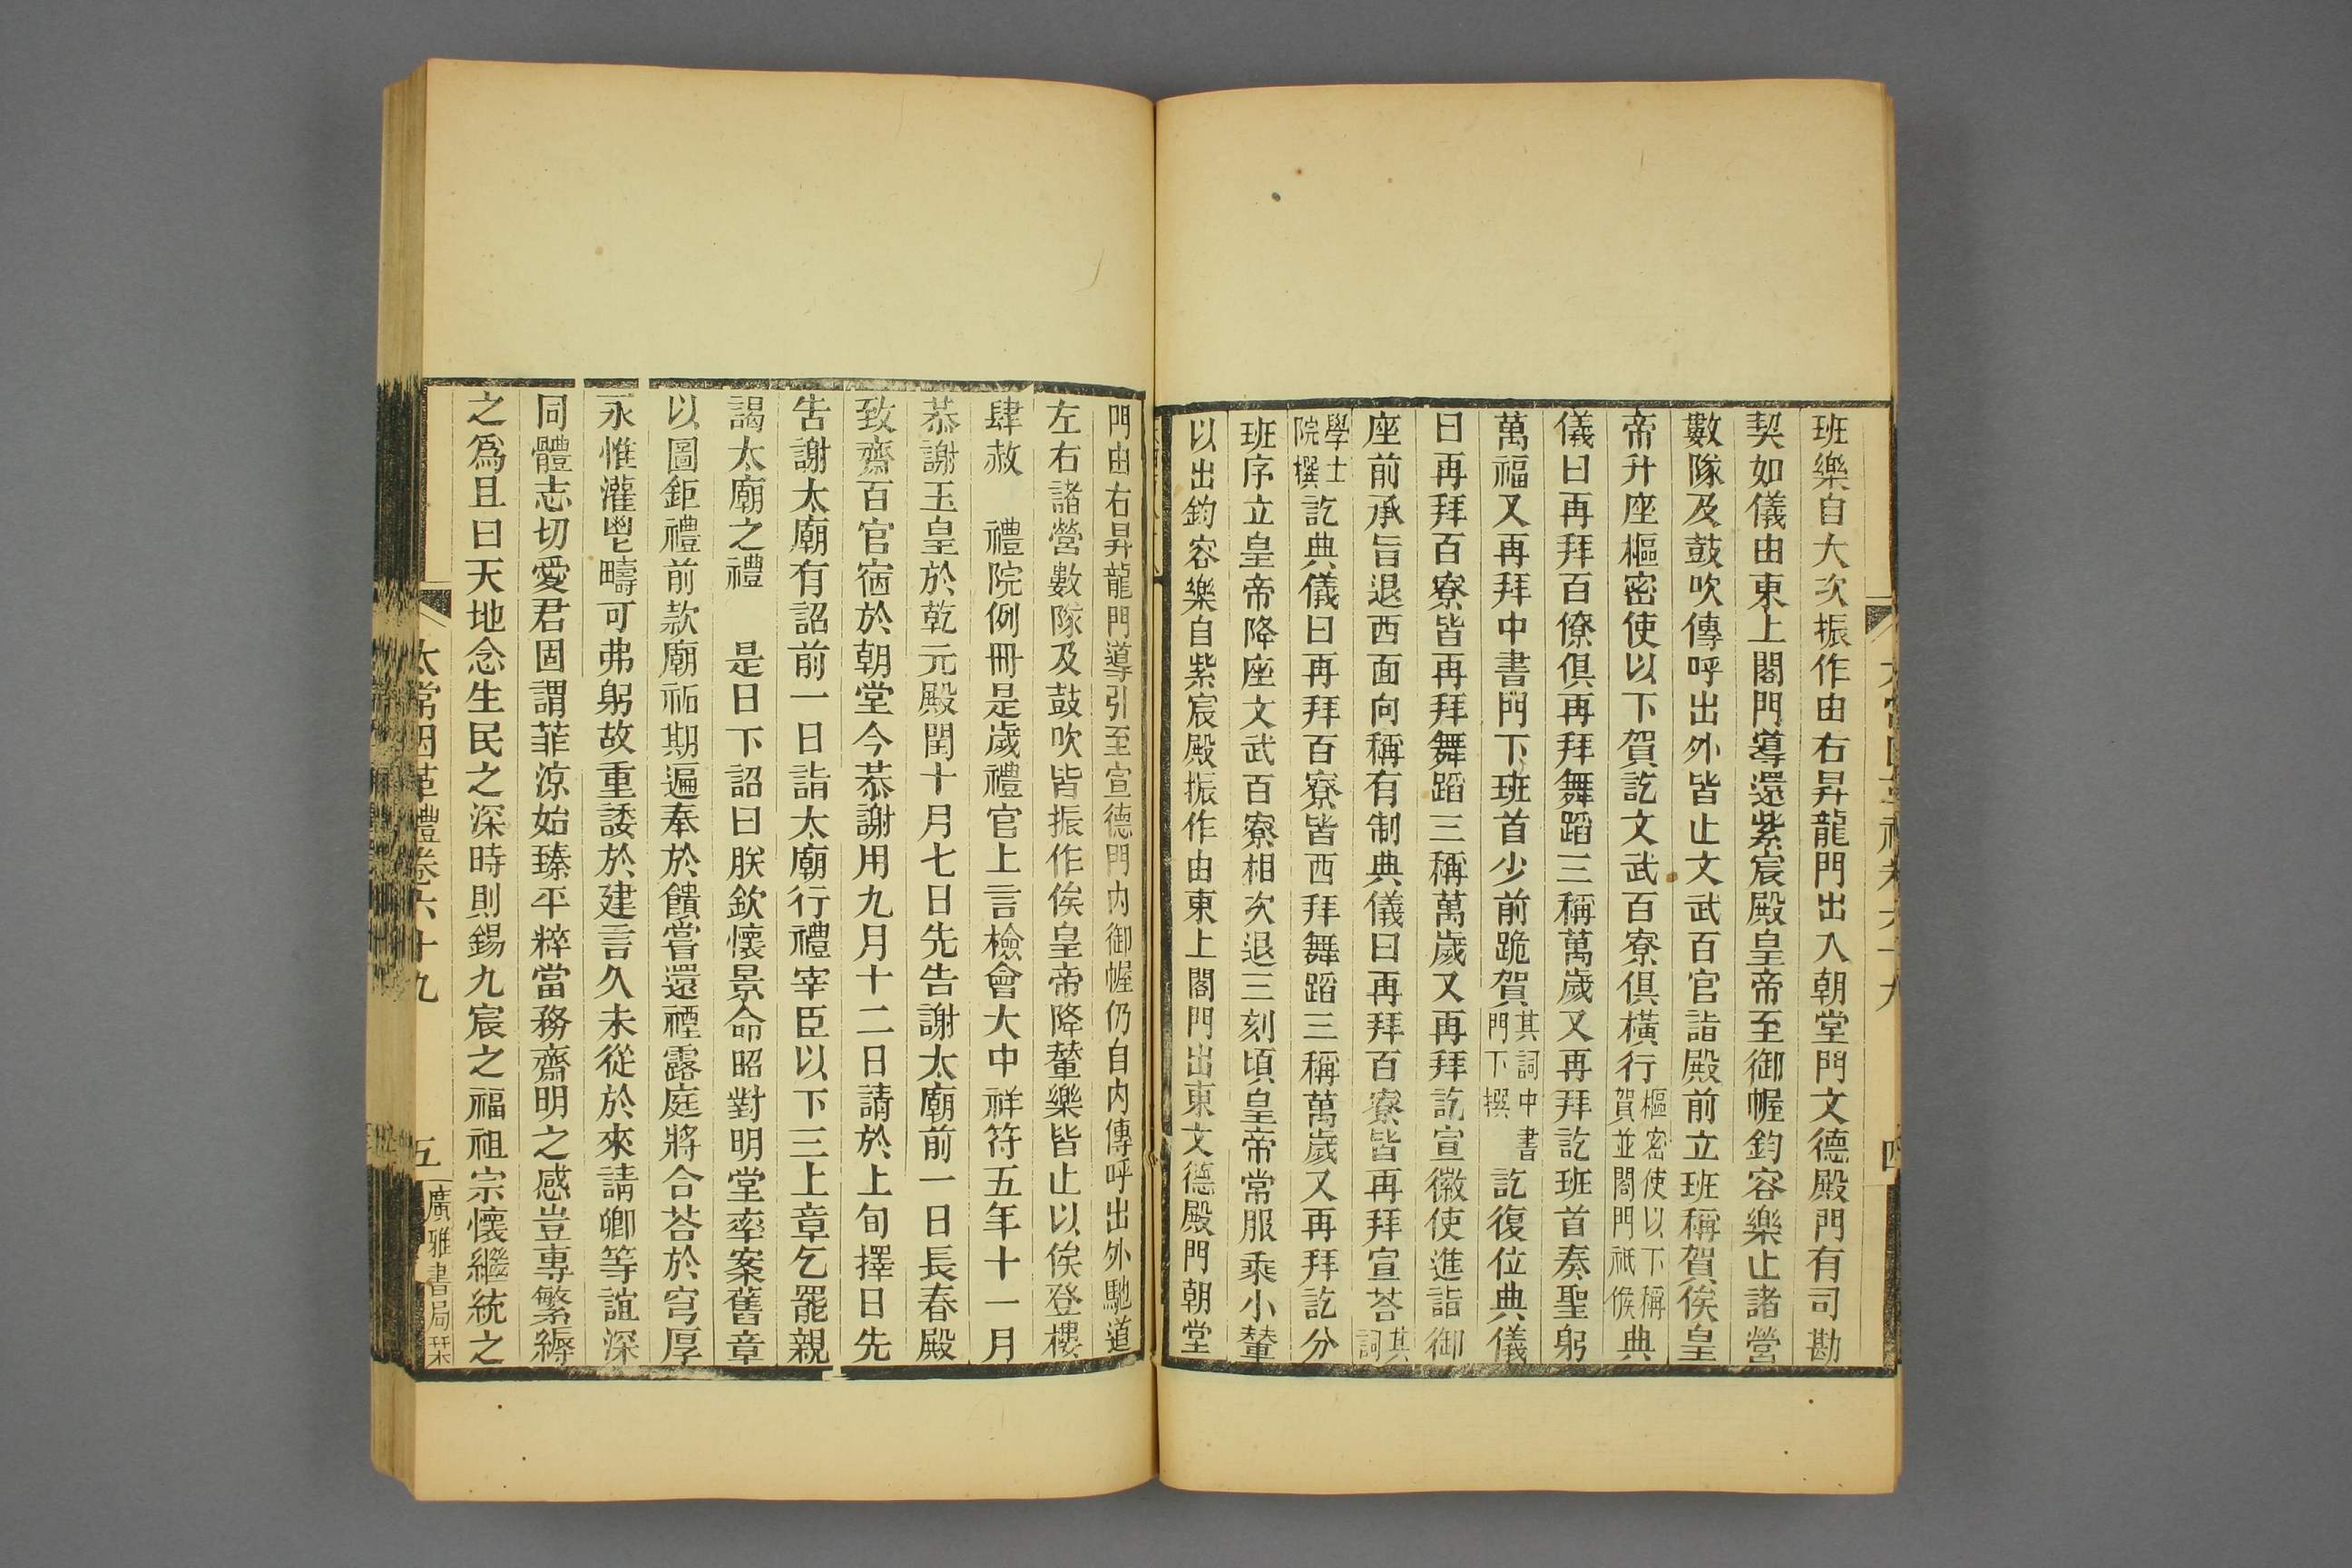 班樂自大次振作由右昇龍門出入朝堂門文德殿門有司勘
契如儀由東上閤門導還紫宸殿皇帝至御幄鈞容樂止諸營
數隊及鼓吹傳呼出外皆止文武百官詣殿前立班稱賀俟皇
帝升座樞密使以下賀訖文武百寮俱橫行樞密使以下稱賀並閤門祇候典
儀曰再拜百僚俱再拜舞蹈三稱萬歲又再拜訖班首奏聖躬
萬福又再拜中書門下班首少前跪賀其詞中書門下撰訖復位典儀
曰再拜百寮皆再拜舞蹈三稱萬歲又再拜訖宣徽使進詣御
座前承旨退西面向稱有制典儀曰再拜百寮皆再拜宣荅其詞
學士院撰訖典儀曰再拜百寮皆西拜舞蹈三稱萬歲又再拜訖分
班序立皇帝降座文武百寮相次退三刻頃皇帝常服乘小輦
以出鈞容樂自紫宸殿振作由東上閤門出東文德殿門朝堂
門由右昇龍門導引至宣德門內御幄仍自內傳呼出外馳道
左右諸營數隊及鼓吹皆振作俟皇帝降輦樂皆止以俟登樓
肆赦　禮院例冊是歲禮官上言檢會大中祥符五年十一月
恭謝玉皇於乾元殿閏十月七日先告謝太廟前一日長春殿
致齋百官宿於朝堂今恭謝用九月十二日請於上旬擇日先
告謝太廟有詔前一日詣太廟行禮宰臣以下三上章乞罷親
謁太廟之禮　是日下詔曰朕欽懷景命昭對明堂率案舊章
以圖鉅禮前款廟祏期遍奉於饋嘗還禋露庭將合荅於穹厚
永惟灌鬯疇可弗躬故重諉於建言久未從於來請卿等誼深
同體志切愛君固謂菲涼始臻平粹當務齋明之感豈專繁縟
之爲且曰天地念生民之深時則錫九宸之福祖宗懷繼統之
太常因革禮卷六十九　五　廣雅書局栞